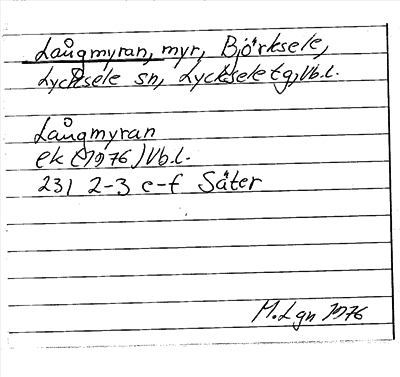 Långmyran, myr, Björksele,
Lycksele sn, Lycksele tg, Vb.l.
Långmyran
ek (1976) Vb.l.
231 2-3 e-f Säter
M.Lgn 1976